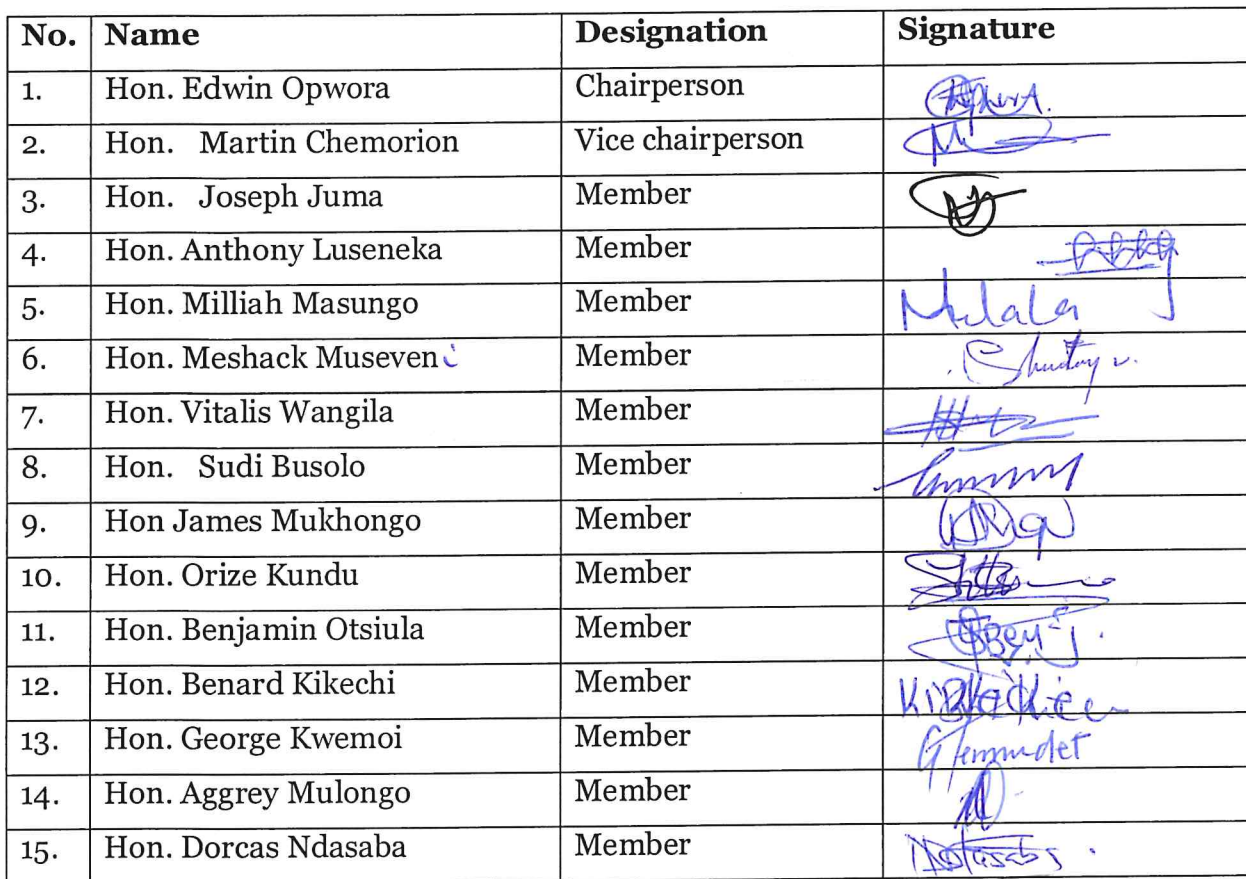 No. Name Designation Signature
1. Hon. Edwin Opwora Chairperson
2. Hon. Martin Chemorion Vice chairperson
3. Hon. Joseph Juma Member
4. Hon. Anthony Luseneka Member
5. Hon. Milliah Masungo Member
6. Hon. Meshack Museveni Member
7. Hon. Vitalis Wangila Member
8. Hon. Sudi Busolo Member
9. Hon James Mukhongo Member
10. Hon. Orize Kundu Member
11. Hon. Benjamin Otsiula Member
12. Hon. Benard Kikechi Member
13. Hon. George Kwemoi Member
14. Hon. Aggrey Mulongo Member
15. Hon. Dorcas Ndasaba Member